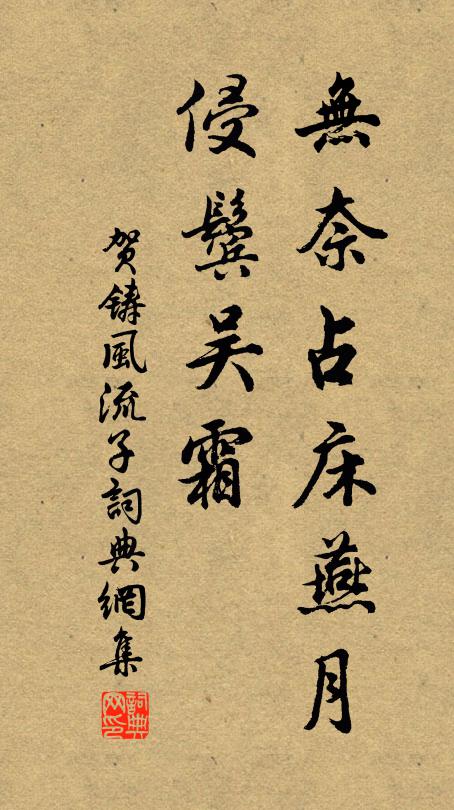 無奈占床燕月
侵鬓吴霜
贺鑄風流子詞典網集
詞典网印